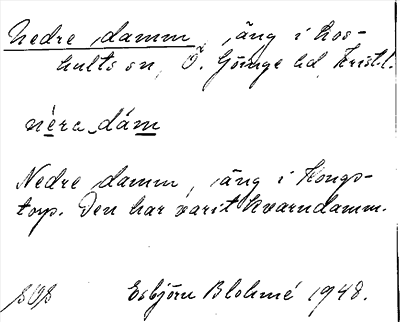 Nedre damm, äng i Los-
hults sn, Ö. Göinge hd, Krist.l.
nera dám
Nedre damm, äng i Kongs-
torp. Den har varit kvarndamm.
Esbjörn Blohmé 1948.